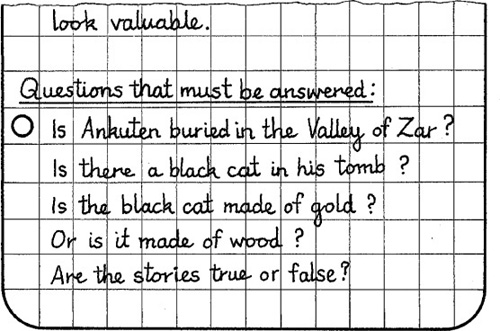 look valuable.
Questions that must be answered:
Is Ankuten buried in the Valley of Zar?
Is there a black cat in his tomb?
Is the black cat made of gold?
Or is it made of wood?
Are the stories true or false?